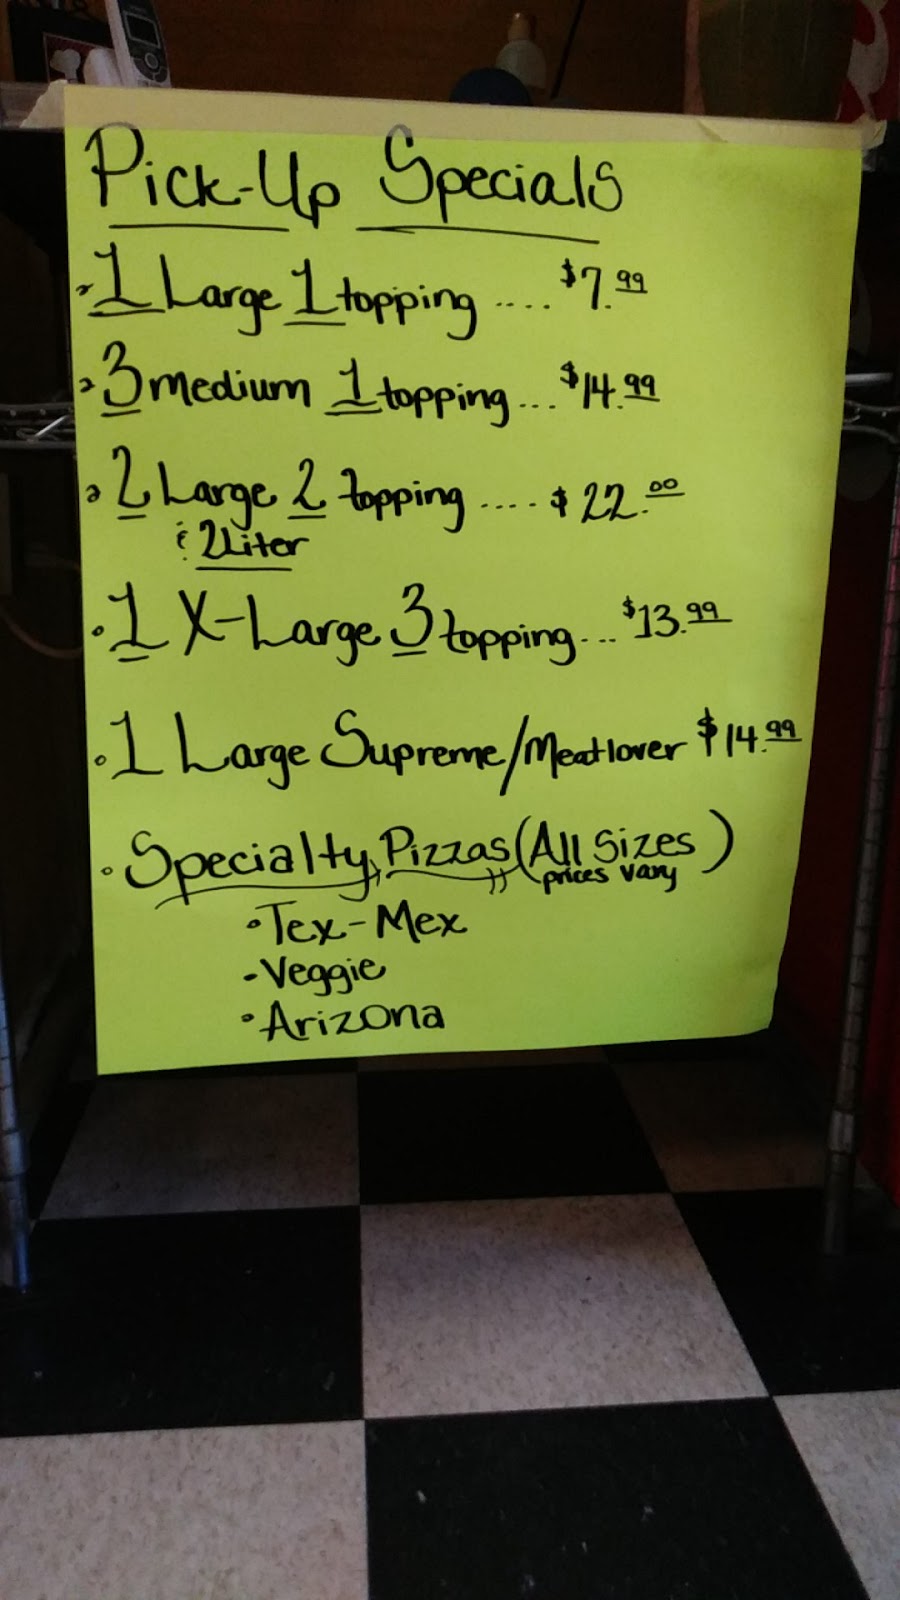 Pick-Up Specials
1 Large 1 topping .... $7.99
3 medium 1 topping ... $14.99
2 Large 2 topping .... $22.00
& 2Liter
1 X-Large 3 topping ... $13.99
1 Large Supreme/Meatlover $14.99
Specialty Pizzas (All Sizes)
prices vary
Tex-Mex
Veggie
Arizona